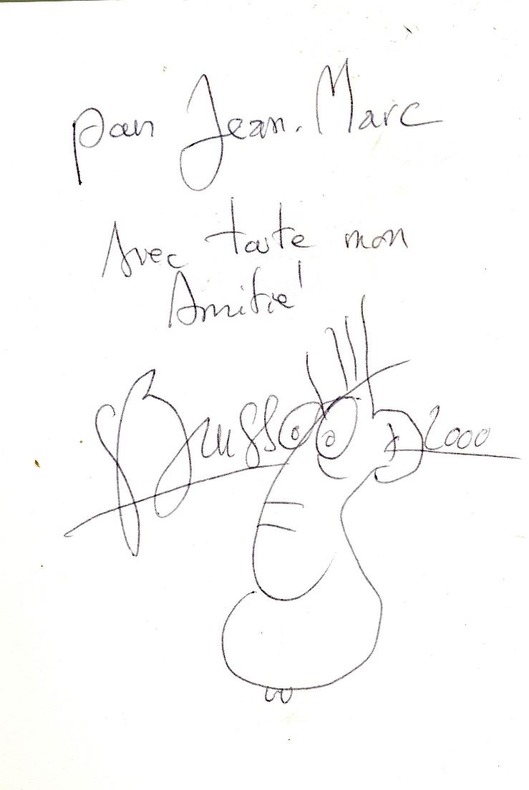 pour Jean-Marc
Avec toute mon
Amitié
2000